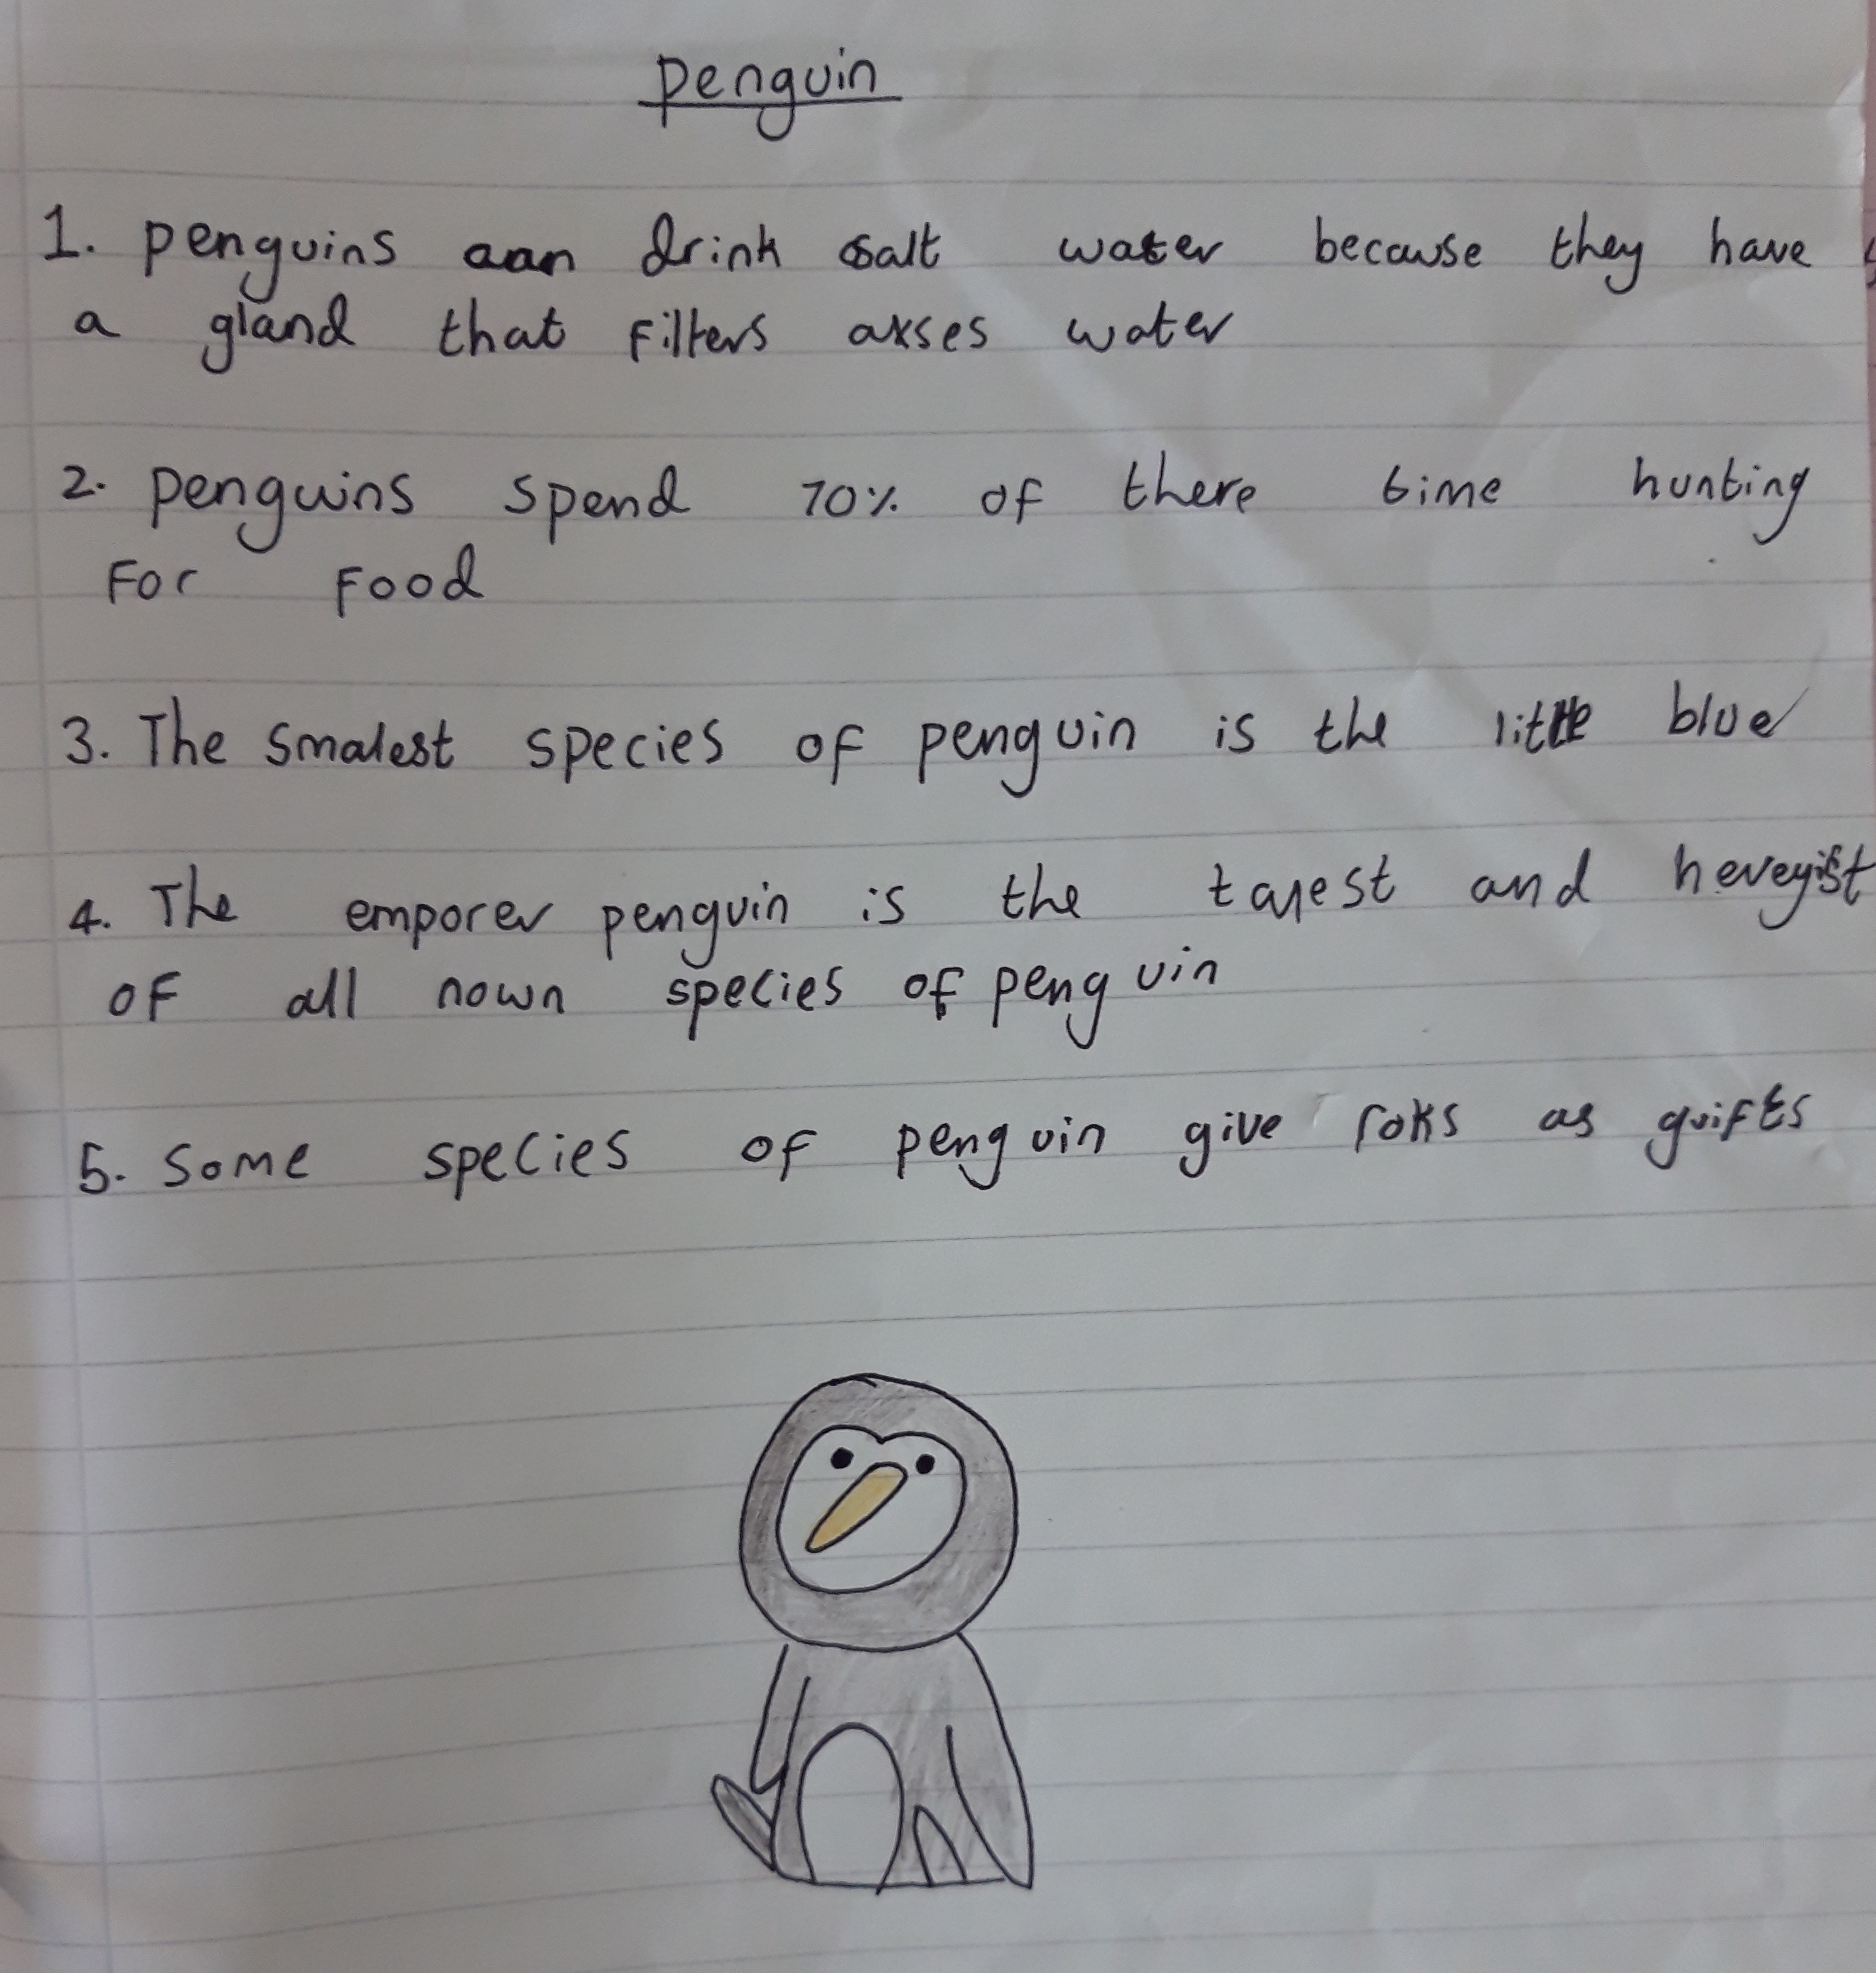 penguin
1. penguins can drink salt water because they have
a gland that filters axses water
2. penguins spend 70% of there time hunting
For Food
3. The smalest species of penguin is the little blue
4. The emporer penguin is the talest and heveyist
of all nown species of penguin
5. Some species of penguin give roks as guifts